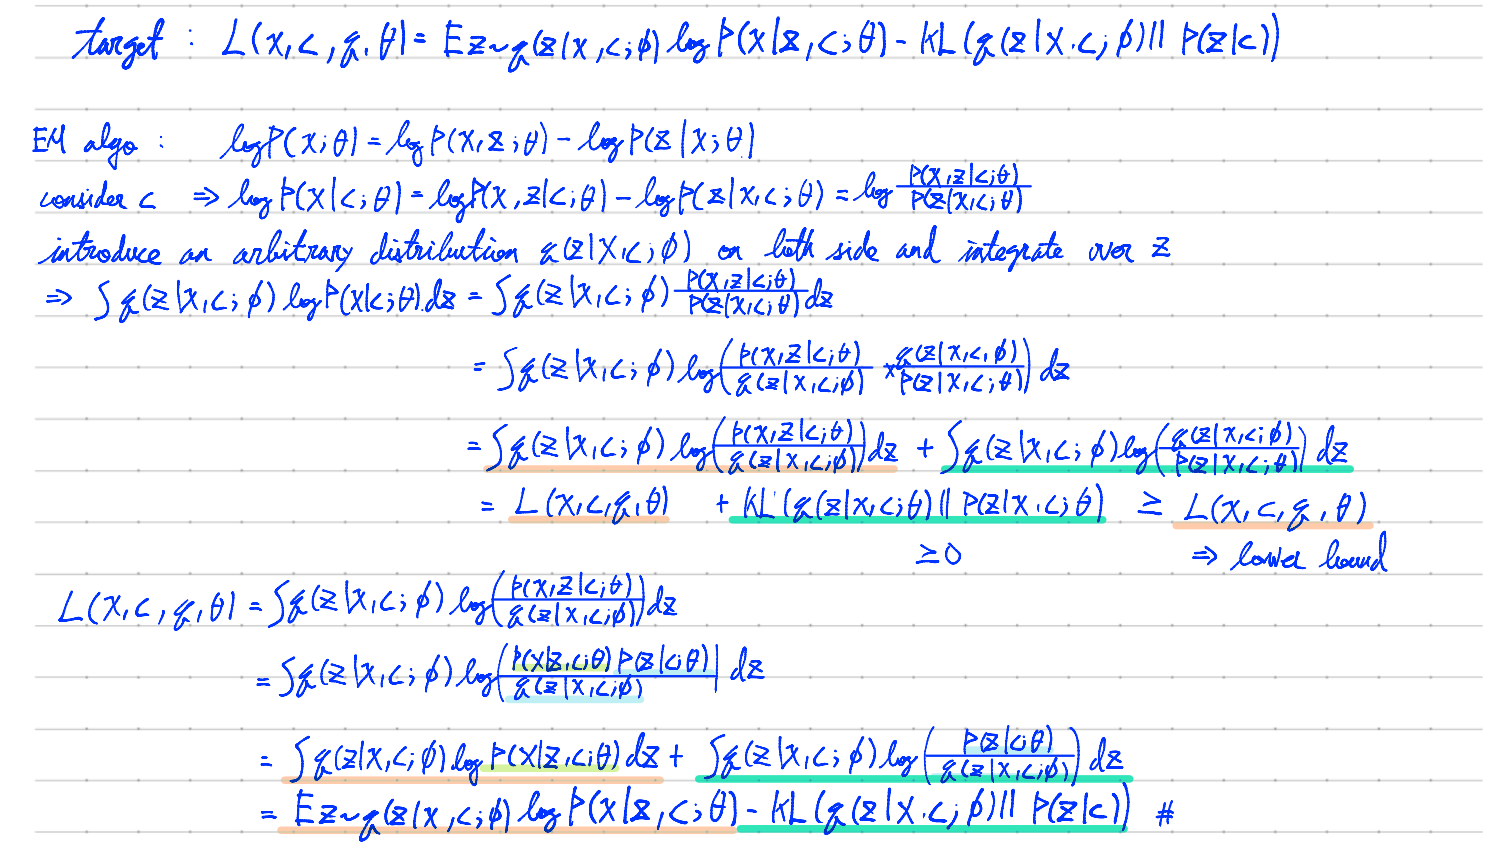 target : L(x, c, q, θ) = E z~q(z|x, c; φ) log P(x|z, c; θ) - KL(q(z|x, c; φ) || P(z|c))
EM algo : log P(x; θ) = log P(x, z; θ) - log P(z|x; θ)
consider c ⇒ log P(x|c; θ) = log P(x, z|c; θ) - log P(z|x, c; θ) = log P(x,z|c;θ) / P(z|x,c;θ)
introduce an arbitrary distribution q(z|x,c; φ) on both side and integrate over z
⇒ ∫ q(z|x,c; φ) log P(x|c;θ) dz = ∫ q(z|x,c; φ) P(x,z|c;θ) / P(z|x,c;θ) dz
= ∫ q(z|x,c; φ) log( P(x,z|c;θ) / q(z|x,c;φ) × q(z|x,c,φ) / P(z|x,c;θ) ) dz
= ∫ q(z|x,c; φ) log( P(x,z|c;θ) / q(z|x,c;φ) ) dz + ∫ q(z|x,c; φ) log( q(z|x,c;φ) / P(z|x,c;θ) ) dz
= L(x,c,q,θ) + KL(q(z|x,c;θ) || P(z|x,c;θ) ≥ L(x, c, q, θ)
≥0 ⇒ lower bound
L(x, c, q, θ) = ∫ q(z|x,c; φ) log( P(x,z|c;θ) / q(z|x,c;φ) ) dz
= ∫ q(z|x,c; φ) log( P(x|z,c;θ) P(z|c;θ) / q(z|x,c;φ) ) dz
= ∫ q(z|x,c; φ) log P(x|z,c;θ) dz + ∫ q(z|x,c; φ) log( P(z|c;θ) / q(z|x,c;φ) ) dz
= E z~q(z|x, c; φ) log P(x|z, c; θ) - KL(q(z|x, c; φ) || P(z|c)) #